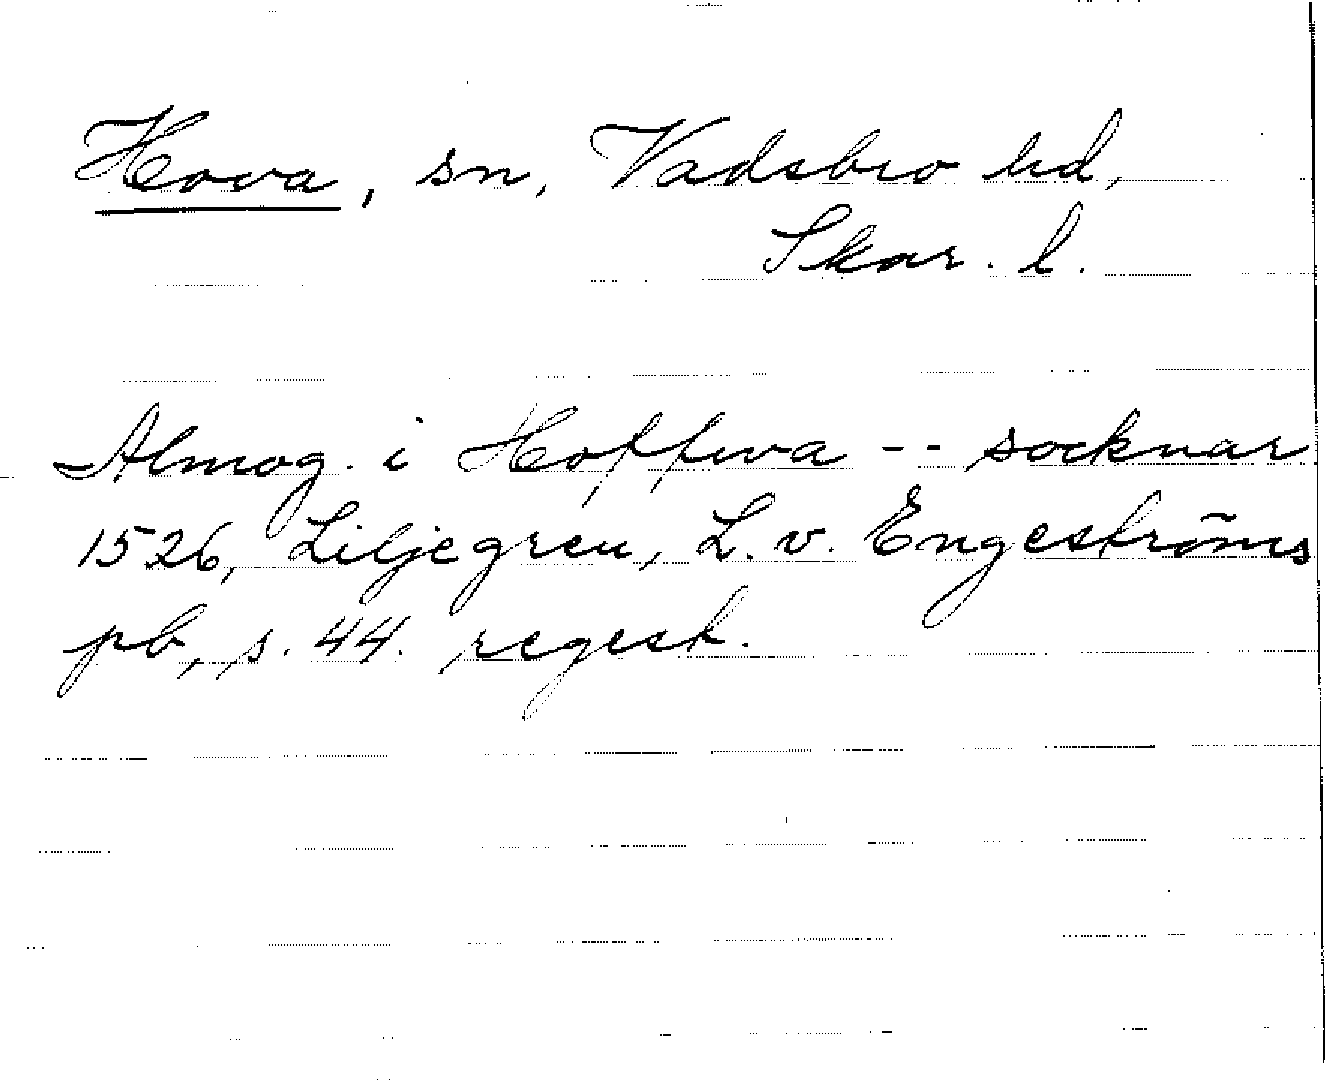 Hova, sn, Vadsbro hd,
Skar. l.
Almog. i Hoffwa -- socknar
1526, Liljegren, L. v. Engeströms
pb, s. 44. regest.